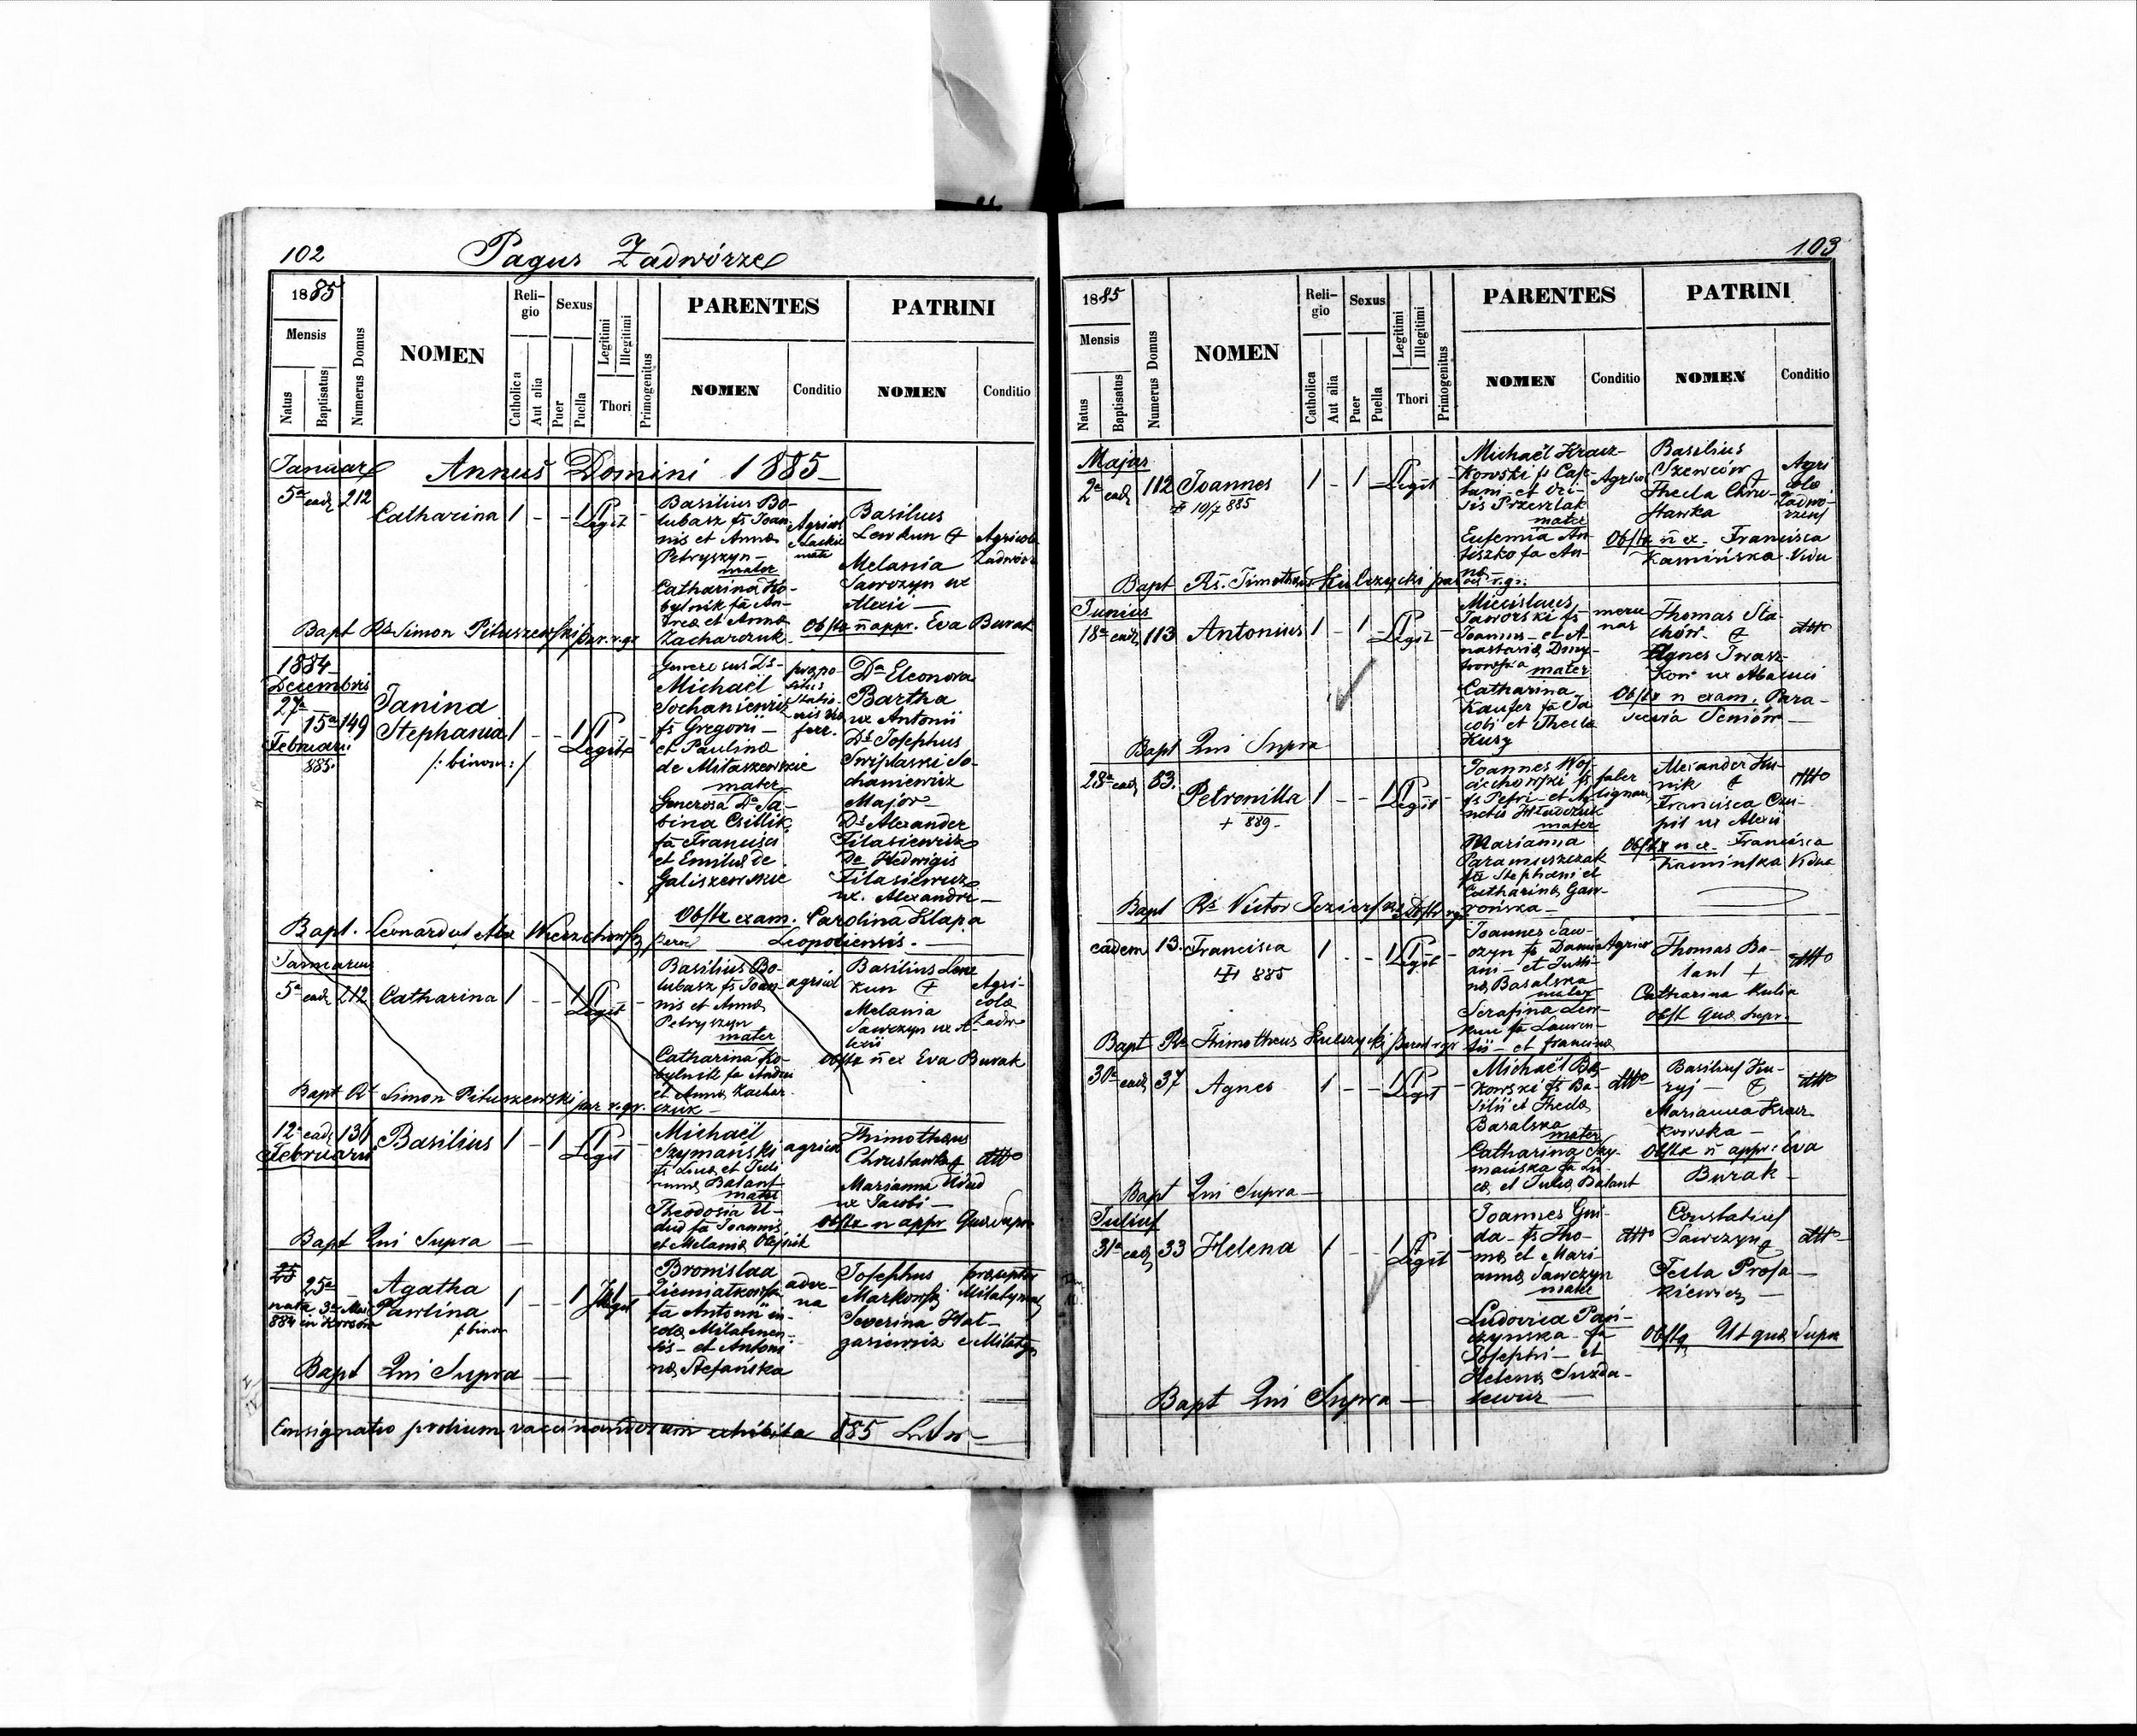 102
Pagus Zadwórze
1885
Mensis
Natus
Baptisatus
Numerus Domus
NOMEN
Religio
Catholica
Aut alia
Sexus
Puer
Puella
Legitimi
Illegitimi
Thori
Primogenitus
PARENTES
NOMEN
Conditio
PATRINI
NOMEN
Conditio
Januar
Annus Domini 1885
5ª ead 212
Catharina
1 - - 1 Legit
Basilius Bo-
lubasz fs Joan-
nis et Anna
Petryszyn -
mater
Catharina Ko-
bylnik fa An-
drea et Anna
Zacharczuk
Agricol
Basilius
Lewkun
Melania
Sawczyn ux
Alexii -
Agricola
Zadwórz
Obstx n appr. Eva Burak
Bapt Rs Simon Pituszewski par. r. gr
1884
Decembris
27ª
15ª 149
Februarii
885.
Janina
Stephania
/: binom :/
1 - - 1 Legit
Michaël
fs Gregorii -
et Paulina
de Mitaszewskie
mater
Generosa Da Sa-
bina Csillik
fa Francisci
et Emilia de
Galiszewskie
Da Eleonora
Bartha
ux Antonii
Ds Josephus
chaniewicz
Major
Ds Alexander
Filasiewicz
Da Hedwigis
Filasiewicz
ux. Alexandri -
Obstx exam. Carolina Klapa
Leopoliensis. -
Bapt. Leonardus
Januarius
5ª ead 212 Catharina
1 - - 1 Legit
Basilius Bo-
lubasz fs Joan-
nis et Anna
Petryszyn
mater
Catharina Ko-
bylnik fa Andrei
et Anna Zachar-
czuk -
agricol
Basilius Lew
kun
Melania
Sawczyn ux A-
lexii
Agri-
cola
Zadw
Obstx n ex Eva Burak
Bapt Rs Simon Pituszewski par r. gr.
12ª ead 131 Basilius
Februarii
1 - 1 - Legit
Michaël
Szymański
Balant
mater
Theodosia U-
dud fa Joannis
et Melania Olejnik
agricol
Thimotheus
Chrustawka
Marianna Udud
ux Jacobi -
dtto
Obstx n appr Qua Supra
Bapt Qui Supra -
25ª
nata 3ª Mai
884 in
Agatha
Pawlina
/: binom
1 - - 1 Illegit
Bronislaa
Ziemiatkowska
fa Antonii in-
cola Milatinen-
sis - et Antoni
na Stefańska
adve-
na
Josephus
Markowski
Severina Hat-
gariewicz e Milatyn
Bapt Qui Supra -
Consignatio prolium vaccinandorum exhibita 885
103
1885
Mensis
Natus
Baptisatus
Numerus Domus
NOMEN
Religio
Catholica
Aut alia
Sexus
Puer
Puella
Legitimi
Illegitimi
Thori
Primogenitus
PARENTES
NOMEN
Conditio
PATRINI
NOMEN
Conditio
Majus
2ª ead 112 Joannes
10/7 885
1 - 1 - Legit
Michaël Kracz-
kowski fs Caje-
tani - et Iri-
sis Przewlak
mater
Eufemia An-
tiszko fa An-
na
Agricol
Basilius
Szewców
Thecla Chru-
stawka
Agri
cola
Zadwo-
rzens
Obstx n ex. Francisca
Kamińska Vidu
Bapt Rs. Timotheus Kulczycki par r. gr.
Junius
18ª ead 113 Antonius
1 - 1 - Legit
Miecislaus
Jaworski fs
Joannis - et A-
nastasia Dmy-
trowska mater
Catharina
Kaufer fa Ja-
cobi et Thecla
Kusy
merce
nar
Thomas Sta-
chów.
Agnes Iwasz-
ków ux
dtto
Obstx n exam. Para-
scevia Seniów -
Bapt Qui Supra
28ª ead 83.
Petronilla
+ 889.
1 - - 1 Legit
Joannes Woj-
ciechowski fs
fs Petri - et A-
mater
Marianna
Paramuszczak
fa Stephani et
Catharina Gaw-
rońska -
faber
lignari
Alexander Ku-
nik
Francisca Czu-
pil ux Alexii
dtto
Obstx n ex. Francisca
Kamińska Vidua
Bapt Rs Victor
eadem 13. Francisca
885
1 - - 1 Legit
Joannes Saw-
czyn fs Dami-
ani - et Justi-
na Basalska
mater
Serafina Lew-
kun fa Lauren-
tii - et Francisca
Agricol
Thomas Ba-
lant +
Catharina Kulia
Obst Qua Supr.
dtto
Bapt Rs Thimotheus Kulczycki par r gr
30ª ead 37 Agnes
1 - - 1 Legit
Michaël Bo-
kowski fs Ba-
silii et Thecla
Basalska
mater
Catharina Szy-
mańska fa Lu-
ca et Julia Balant
dtto
Basilius Ku-
ryj -
Marianna Kracz
kowska -
dtto
Obstx n appr: Eva
Burak -
Bapt Qui Supra -
Julius
31ª ead 33 Helena
1 - - 1 Legit
Joannes Gui-
da - fs Tho-
ma et Mari-
anna Sawczyn
mater
Ludovica Pań-
czynska - fa
Josephi - et
Helena Suzda-
lewicz -
dtto
Constatius
Sawczyn
Tecla Prosa-
kiewicz -
dtto
Obstx Ut qua Supra
Bapt Qui Supra -